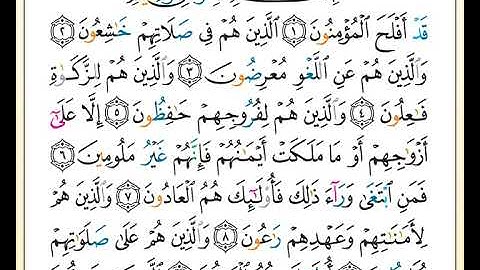 قَدْ أَفْلَحَ الْمُؤْمِنُونَ ١ الَّذِينَ هُمْ فِي صَلَاتِهِمْ خَاشِعُونَ ٢
وَالَّذِينَ هُمْ عَنِ اللَّغْوِ مُعْرِضُونَ ٣ وَالَّذِينَ هُمْ لِلزَّكَوٰةِ
فَاعِلُونَ ٤ وَالَّذِينَ هُمْ لِفُرُوجِهِمْ حَافِظُونَ ٥ إِلَّا عَلَىٰ
أَزْوَاجِهِمْ أَوْ مَا مَلَكَتْ أَيْمَانُهُمْ فَإِنَّهُمْ غَيْرُ مَلُومِينَ ٦
فَمَنِ ابْتَغَىٰ وَرَاءَ ذَٰلِكَ فَأُولَٰئِكَ هُمُ الْعَادُونَ ٧ وَالَّذِينَ هُمْ
لِأَمَانَاتِهِمْ وَعَهْدِهِمْ رَاعُونَ ٨ وَالَّذِينَ هُمْ عَلَىٰ صَلَوَاتِهِمْ